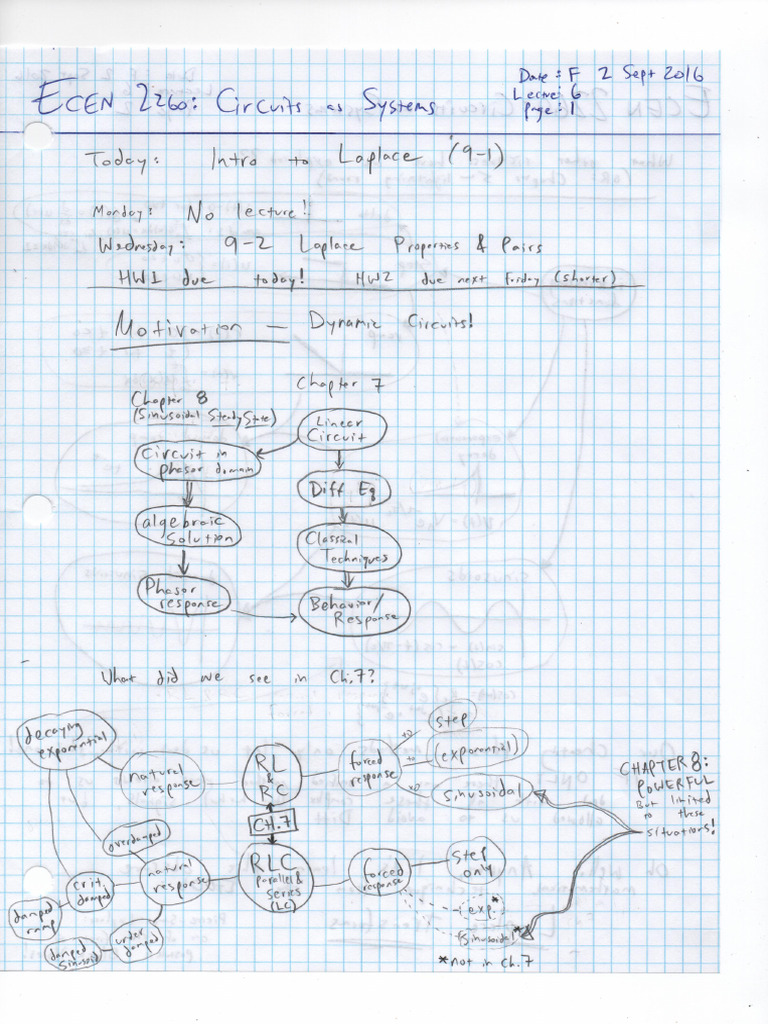 Date: F 2 Sept 2016
Lecture: 6
Page: 1
ECEN 2260: Circuits as Systems
Today: Intro to Laplace (9-1)
Monday: No lecture!!
Wednesday: 9-2 Laplace Properties & Pairs
HW1 due today! HW2 due next Friday (shorter)
Motivation — Dynamic Circuits!
Chapter 7
Chapter 8
(Sinusoidal Steady State)
Linear
Circuit
Circuit in
phasor domain
Diff Eq
algebraic
Solution
Classical
Techniques
Phasor
response
Behavior/
Response
What did we see in Ch.7?
decaying
exponential
natural
response
RL
&
RC
forced
response
to
step
to
(exponential)
to
sinusoidal
CHAPTER 8:
POWERFUL
But limited
to these
situations!
CH.7
overdamped
natural
response
RLC
Parallel &
Series
(LC)
forced
response
step
only
crit.
damped
damped
ramp
under
damped
damped
Sinusoid
exp*
(sinusoidal*
*not in ch.7